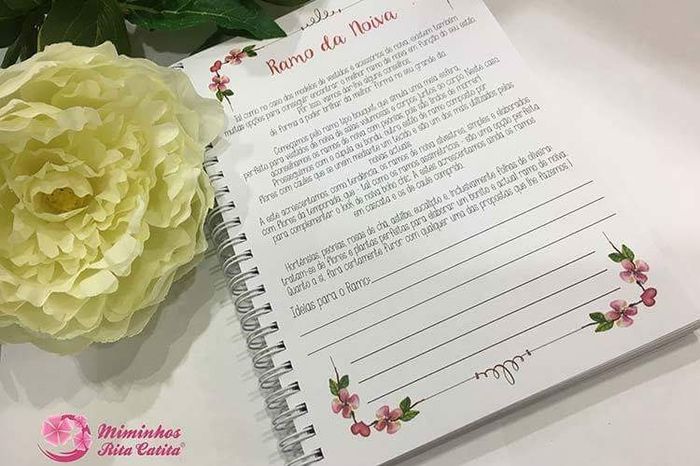 Ramo da Noiva
Tal como no caso dos modelos de vestidos e acessórios de noiva, existem também
muitas opções para conseguir encontrar o melhor ramo de noiva em função do seu estilo.
Por isso, vamos dar-lhe alguns conselhos
de forma a poder brilhar da melhor forma no seu grande dia.
Começamos pelo ramo tipo bouquet, que simula uma meia esfera,
perfeito para vestidos de noiva de saias volumosas e corpos justos ao corpo. Neste caso
aconselhamos os ramos de noiva com peónias, pois são lindos de morrer!
Prosseguimos com o cúpula ou bonda, outro estilo de ramo composto por
flores com caules que se unem mediante um atado e são um dos mais utilizados pelas
noivas actuais.
A este acrescentamos como tendência, os ramos de noiva silvestres, simples e elaborados
com flores da temporada, que , tal como os ramos assimétricos , são uma opção perfeita
para complementar o look de noiva boho chic. A estes acrescentamos ainda os ramos
em cascata e os de caule comprido.
Hortênsias, peónias, rosas de chá, astilbe, eucalipto e, inclusivamente folhas de oliveira:
tratam-se de flores e plantas perfeitas para elaborar um bonito e actual ramo de noiva.
Quanto a si, fará certamente furor com qualquer uma das propostas que lhe fazemos !
Ideias para o Ramo:
Miminhos
Rita Catita®